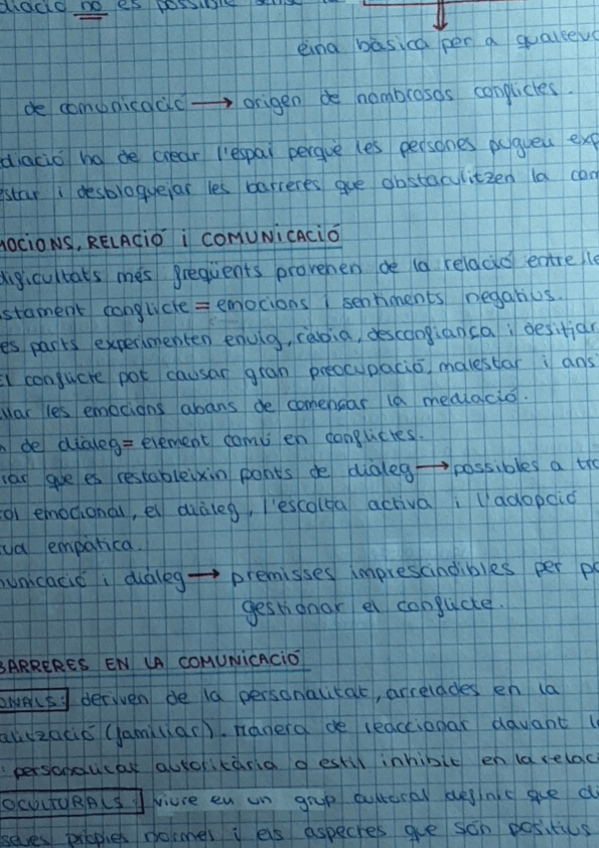 no es possible
eina bàsica per a qualsevo
de comunicació → origen de nombrosos conflictes.
diació ha de crear l'espai perquè les persones puguen exp
estar i desbloquejar les barreres que obstaculitzen la com
MOCIONS, RELACIÓ i COMUNICACIÓ
dificultats més freqüents provenen de la relació entre le
stament conflicte = emocions i sentiments negatius.
es parts experimenten enuig, ràbia, desconfiança i desitjar
El conflicte pot causar gran preocupació, malestar i ans
llar les emocions abans de comensar la mediació.
de diàleg = element comú en conflictes.
rar que es restableixin ponts de diàleg → possibles a tra
ol emocional, el diàleg, l'escolta activa i l'adopció
ud empàtica.
municació i diàleg → premisses imprescindibles per po
gestionar el conflicte.
BARRERES EN LA COMUNICACIÓ
ONALS: deriven de la personalitat, arrelades en la
alització (familiar). Manera de reaccionar davant l
personalitat autoritària o estil inhibit en la relac
OCULTURALS: viure en un grup cultural definit que d
seves pròpies normes i els aspectes que són positius